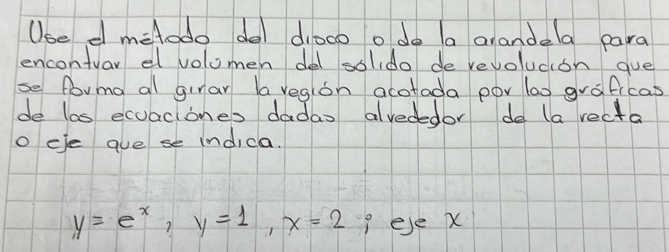 Use el método del disco o de la arandela para
encontrar el volumen del sólido de revolución que
se forma al girar la región acotada por las gráficas
de las ecuaciónes dadas alrededor de la recta
o eje que se indica.
y = e^x, y = 1, x = 2; eje x